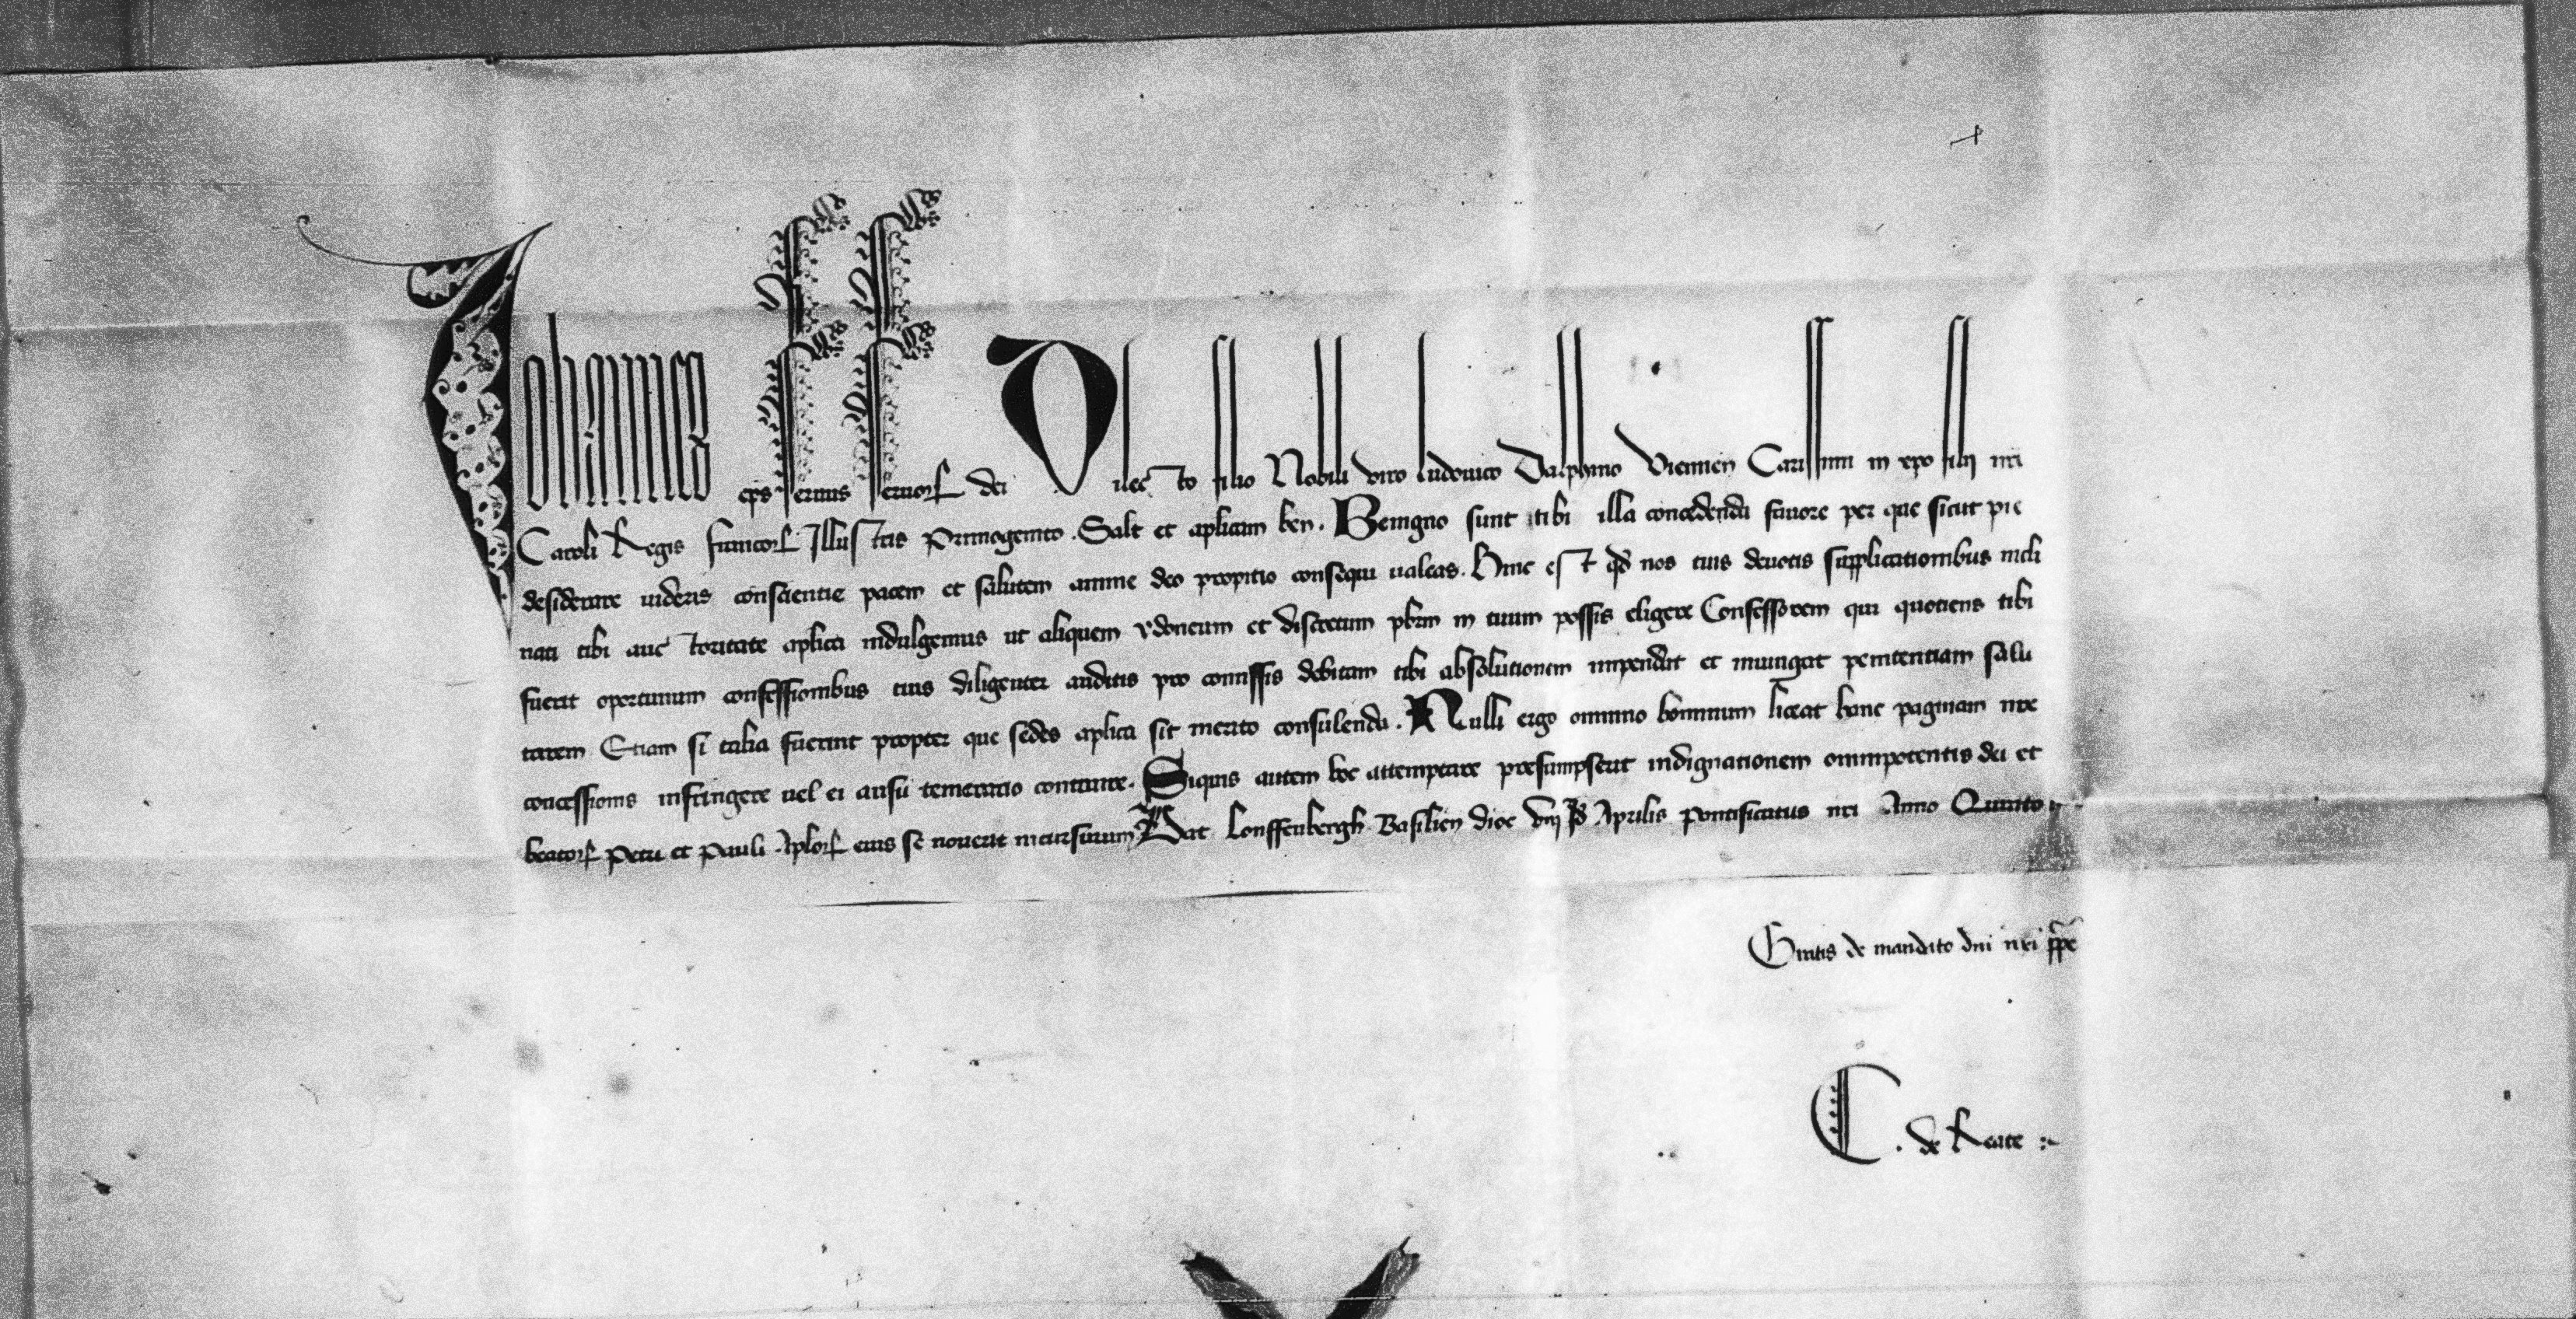 Johannes eps seruus seruoꝝ dei Dilecto filio Nobili viro ludouico Dalphino Viennen Carissimi in xpo filij nri
Caroli Regis francoꝝ Illustris Primogenito . Salt et aplicam ben . Benigno sunt tibi illa concedenda fauore per que sicut pie
desiderare uideris conscientie pacem et salutem anime deo propitio consequi ualeas . Hinc est qd nos tuis deuotis supplicationibus incli
nati tibi auctoritate aplica indulgemus ut aliquem ydoneum et discretum pbrm in tuum possis eligere Confessorem qui quotiens tibi
fuerit oportunum confessionibus tuis diligenter auditis pro comissis debitam tibi absolutionem impendat et iniungat penitentiam salu
tarem Etiam si talia fuerint propter que sedes aplica sit merito consulenda . Nulli ergo omnino hominum liceat hanc paginam nre
concessionis infringere uel ei ausu temerario contraire . Siquis autem hoc attemptare presumpserit indignationem omnipotentis dei et
beatoꝝ Petri et Pauli Aploꝝ eius se nouerit incursurum Dat Lonffenbergh Basilien dioc viij Id Aprilis Pontificatus nri Anno Quinto
Gratis de mandato dni nri ppe
C . de Reate